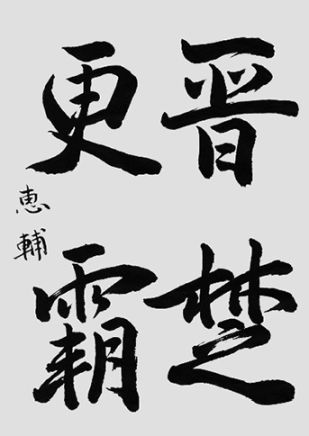 晋楚
更霸
恵輔